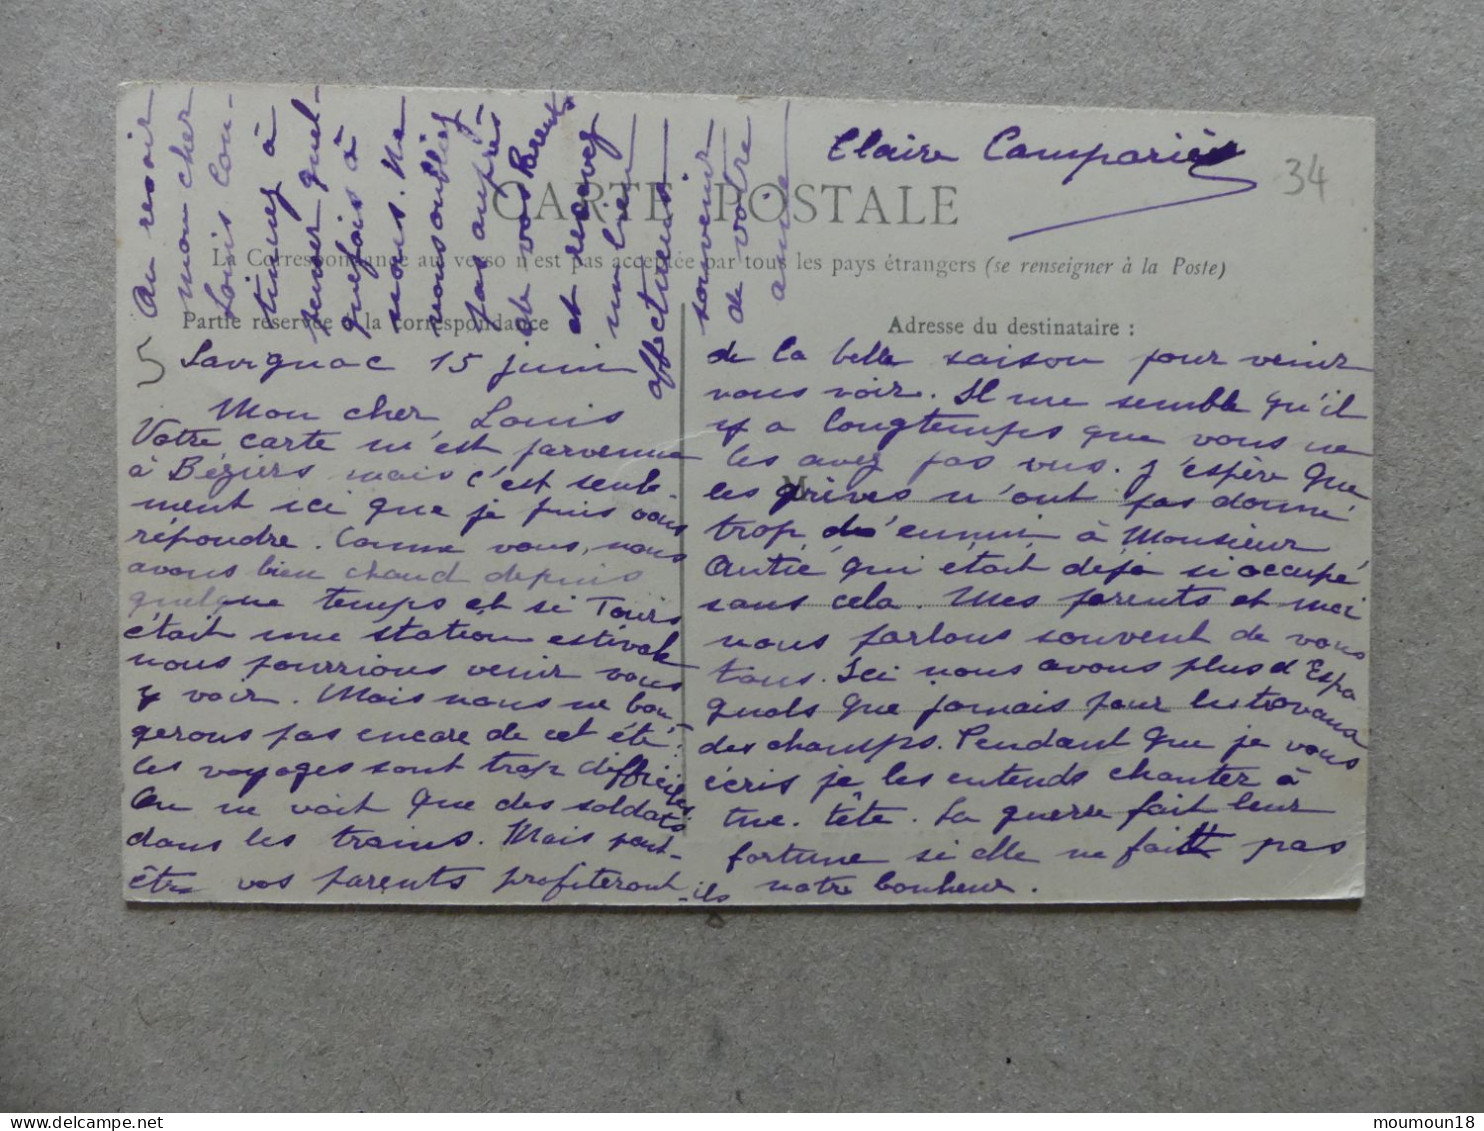 Claire Campariès
34
CARTE POSTALE
La Correspondance au verso n'est pas acceptée par tous les pays étrangers (se renseigner à la Poste)
Partie réservée à la correspondance
Adresse du destinataire :
5
Savignac 15 juin
Mon cher Louis
Votre carte m'est parvenue
à Béziers mais c'est seule-
ment ici que je puis vous
répondre. Comme vous, nous
avons bien chaud depuis
quelque temps et si Tours
était une station estivale
nous pourrions venir vous
y voir. Mais nous ne bou-
gerons pas encore de cet été.
les voyages sont trop difficiles.
On ne voit que des soldats
dans les trains. Mais peut-
être vos parents profiteront-ils
de la belle saison pour venir
nous voir. Il me semble qu'il
y a longtemps que vous ne
les avez pas vus. J'espère que
les grives n'ont pas donné
trop d'ennui à Monsieur
Autié qui était déjà si occupé
sans cela. Mes parents et moi
nous parlons souvent de vous
tous. Ici nous avons plus d'Espa
gnols que jamais pour les travaux
des champs. Pendant que je vous
écris je les entends chanter à
tue-tête. La guerre fait leur
fortune si elle ne fait pas
notre bonheur.
Au revoir
mon cher
Louis con-
tinuez à
penser quel-
quefois à
nous. Ne
nous oubliez
pas auprès
de vos Parents
et recevez
un bien
affectueux
souvenir
de votre
amie
M
moumoun18